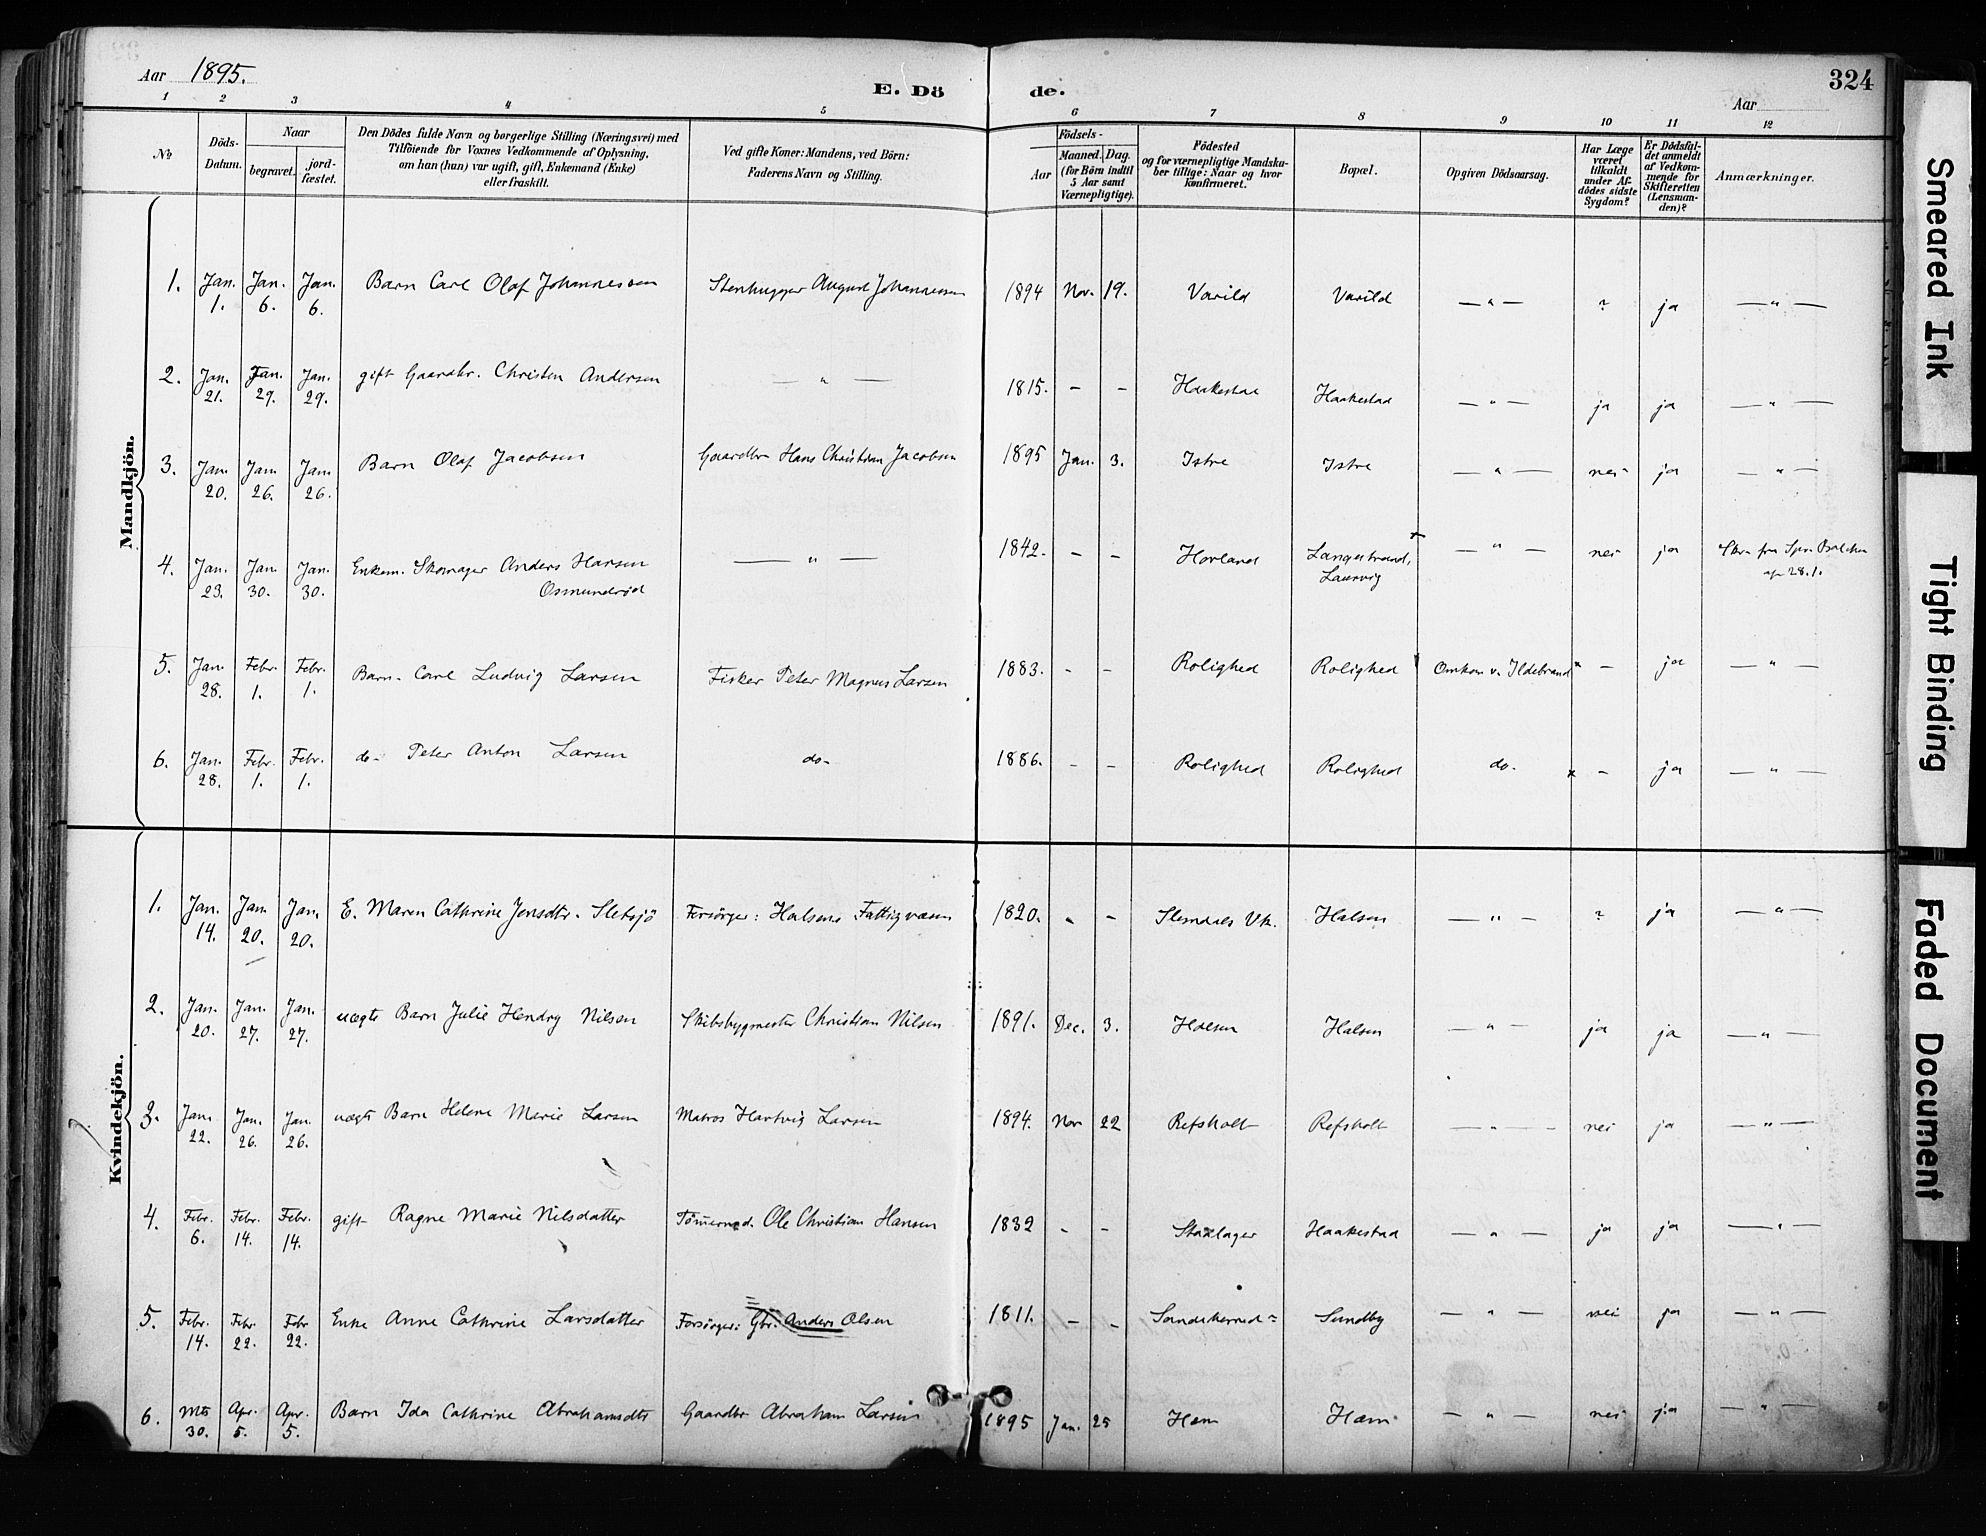 Aar 1895.
E. Döde.
324
Aar
1 2 3 4 5 6 7 8 9 10 11 12
№
Döds-Datum.
Naar
begravet.
jordfæstet.
Den Dödes fulde Navn og borgerlige Stilling (Næringsvei) med
Tilföiende for Voxnes Vedkommende af Oplysning,
om han (hun) var ugift, gift, Enkemand (Enke)
eller fraskilt.
Ved gifte Koner: Mandens, ved Börn:
Faderens Navn og Stilling.
Födsels-
Aar
Maaned. Dag.
(for Börn indtil
5 Aar samt
Værnepligtige).
Födested
og for værnepligtige Mandskaber
tillige: Naar og hvor
konfirmeret.
Bopæl.
Opgiven Dödsaarsag.
Har Læge
været
tilkaldt
under Afdödes
sidste
Sygdom?
Er Dödsfaldet
anmeldt
af Vedkommende
for
Skifteretten
(Lensmanden)?
Anmærkninger.
Mandkjön.
1. Jan. 1. Jan. 6. Jan. 6. Barn Carl Olaf Johannessen Stenhugger August Johannessen 1894 Nov. 19. Varild Varild — " — ? ja — " —
2. Jan. 21. Jan. 29. Jan. 29. gift Gaardbr. Christen Andersen — " — 1815. - - Haakestad Haakestad — " — ja ja — " —
3. Jan. 20. Jan. 26. Jan. 26. Barn Olaf Jacobsen Gaardbr Hans Christian Jacobsen 1895 Jan. 3. Istre Istre — " — nei ja — " —
4. Jan. 23. Jan. 30. Jan. 30. Enkem. Skomager Anders Hansen — " — 1842. - - Hovland Langestrand, — " — nei ja
Osmundröd Laurvig 28.1.
5. Jan. 28. Febr. 1. Febr. 1. Barn. Carl Ludvig Larsen Fisker Peter Magnus Larsen 1883. - - Rolighed Rolighed Omkom v. Ildebrand x - ja — " —
6. Jan. 28. Febr. 1. Febr. 1. do- Peter Anton Larsen do- 1886. - - Rolighed Rolighed do- x - ja — " —
Kvindekjön.
1. Jan. 14. Jan. 20. Jan. 20. E. Maren Cathrine Jensdtr. Sletsjö Forsörger: Halsens Fattigvæsen 1820. - - Halsen — " — ? ja — " —
2. Jan. 20. Jan. 27. Jan. 27. uægte Barn Julie Hendry Nilsen Skibsbygmester Christian Nilsen 1891. Dec. 3. Halsen Halsen — " — ja ja — " —
3. Jan. 22. Jan. 26. Jan. 26. uægte Barn Helene Marie Larsen Matros Hartvig Larsen 1894. Nov 22 Refsholt Refsholt — " — nei ja — " —
4. Febr. 6. Febr. 14. Febr. 14. gift Ragne Marie Nilsdatter Tömermd. Ole Christian Hansen 1832 - - Staxlager Haakestad — " — ja ja — " —
5. Febr. 14. Febr. 22. Febr 22. Enke Anne Cathrine Larsdatter Forsörger: Gbr. Anders Olsen 1811. - - Sundby — " — nei ja — " —
6. Mts 30. Apr. 5. Apr. 5. Barn Ida Cathrine Abrahamsdtr Gaardbr Abraham Larsen 1895 Jan. 25 Hem Hem — " — nei ja — " —
Smeared Ink
Tight Binding
Faded Document